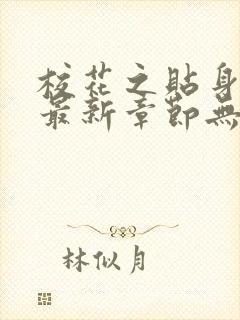 校花之貼身
最新章節無
林似月